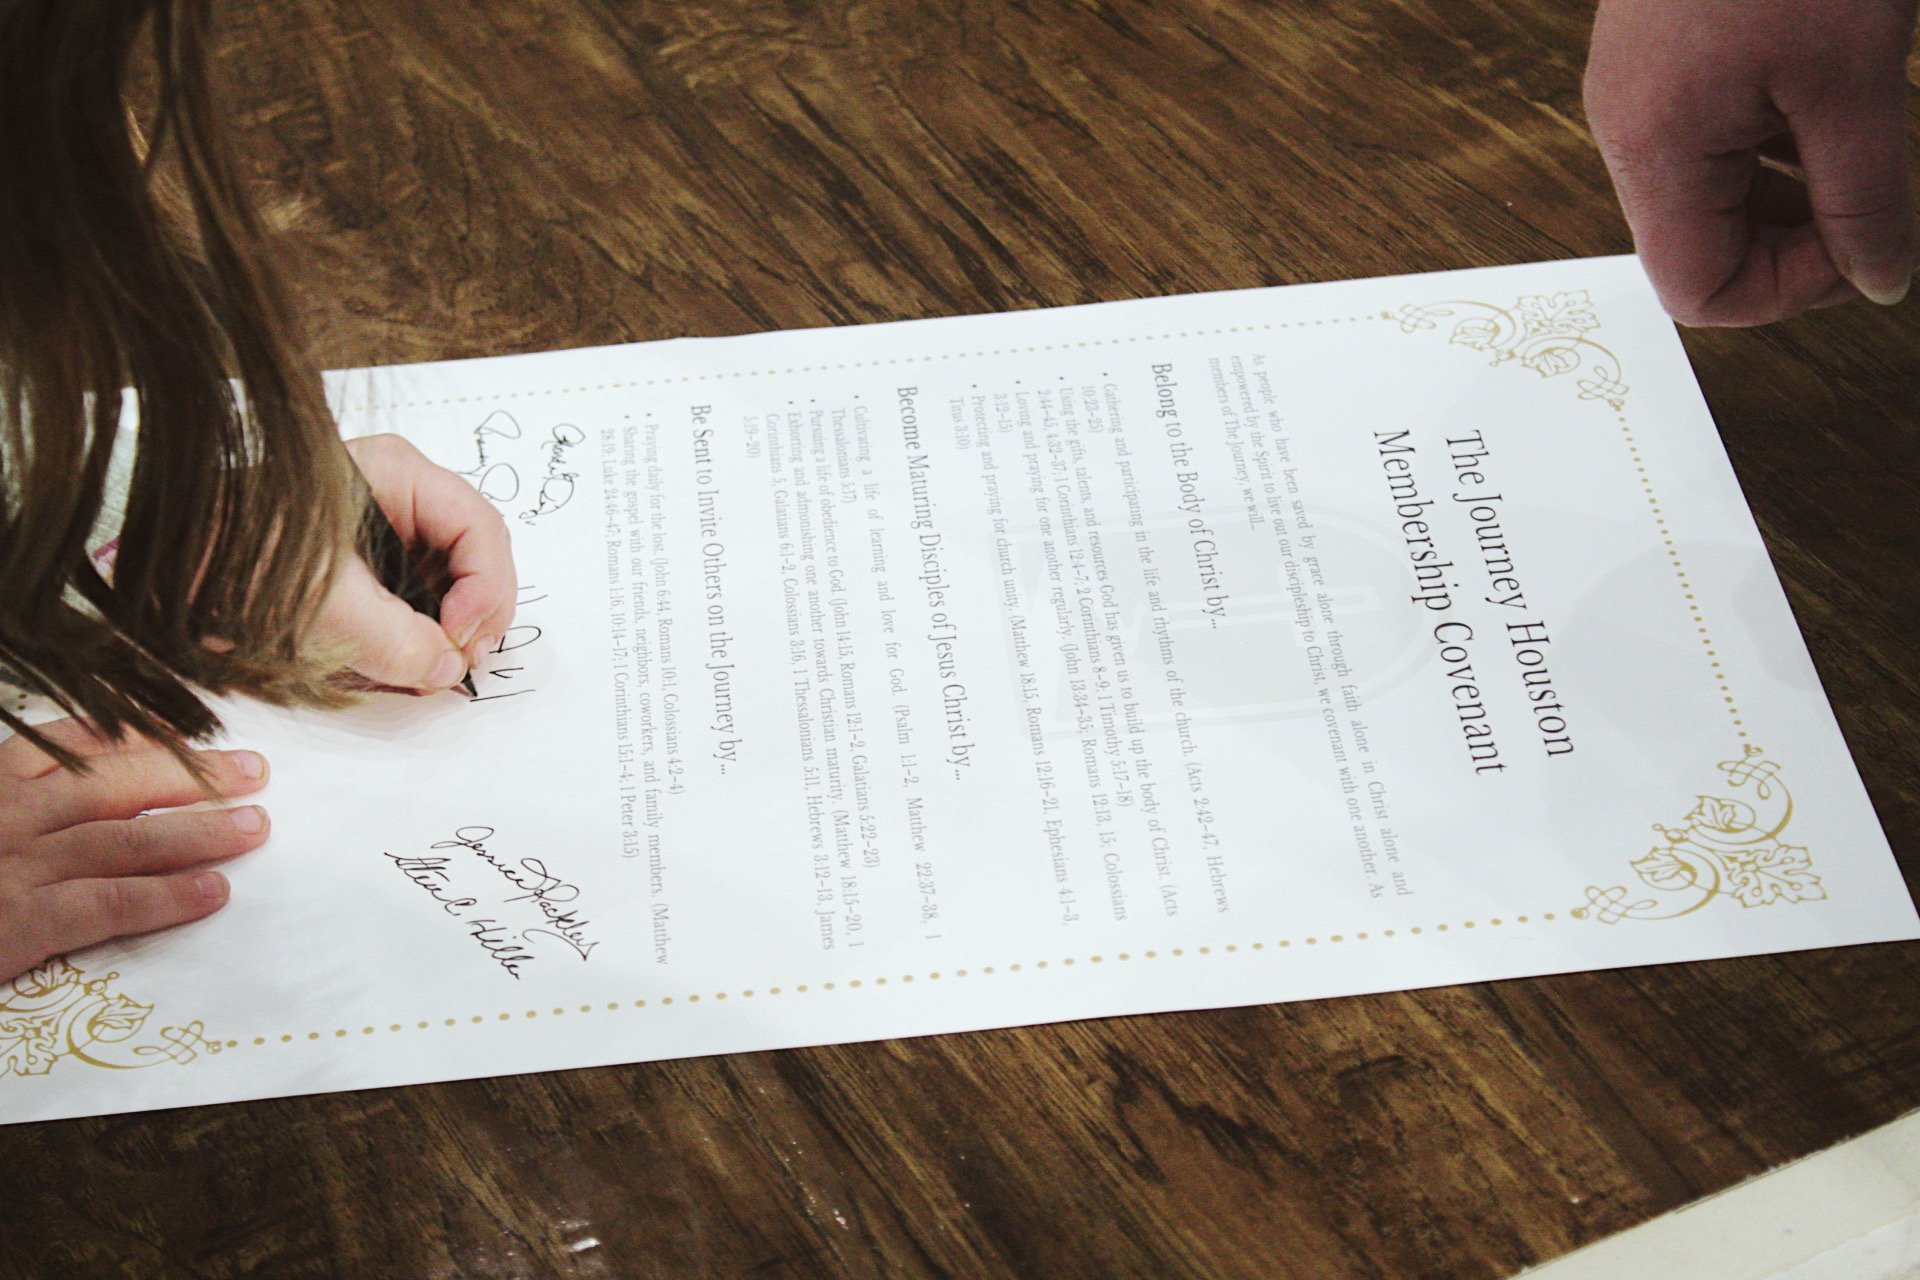 The Journey Houston
Membership Covenant
As people who have been saved by grace alone through faith alone in Christ alone and
empowered by the Spirit to live out our discipleship to Christ, we covenant with one another. As
members of The Journey, we will...
Belong to the Body of Christ by...
• Gathering and participating in the life and rhythms of the church. (Acts 2:42–47, Hebrews
10:23–25)
• Using the gifts, talents, and resources God has given us to build up the body of Christ. (Acts
2:44–45, 4:32–37; 1 Corinthians 12:4–7; 2 Corinthians 8–9; 1 Timothy 5:17–18)
• Loving and praying for one another regularly. (John 13:34–35; Romans 12:13, 15; Colossians
3:12–15)
• Protecting and praying for church unity. (Matthew 18:15, Romans 12:16–21, Ephesians 4:1–3,
Titus 3:10)
Become Maturing Disciples of Jesus Christ by...
• Cultivating a life of learning and love for God. (Psalm 1:1–2, Matthew 22:37–38, 1
Thessalonians 5:17)
• Pursuing a life of obedience to God. (John 14:15, Romans 12:1–2, Galatians 5:22–23)
• Exhorting and admonishing one another towards Christian maturity. (Matthew 18:15–20, 1
Corinthians 5, Galatians 6:1–2, Colossians 3:16, 1 Thessalonians 5:11, Hebrews 3:12–13, James
5:19–20)
Be Sent to Invite Others on the Journey by...
• Praying daily for the lost. (John 6:44, Romans 10:1, Colossians 4:2–4)
• Sharing the gospel with our friends, neighbors, coworkers, and family members. (Matthew
28:19; Luke 24:46–47; Romans 1:16, 10:14–17; 1 Corinthians 15:1–4; 1 Peter 3:15)
Steve C. Hiller